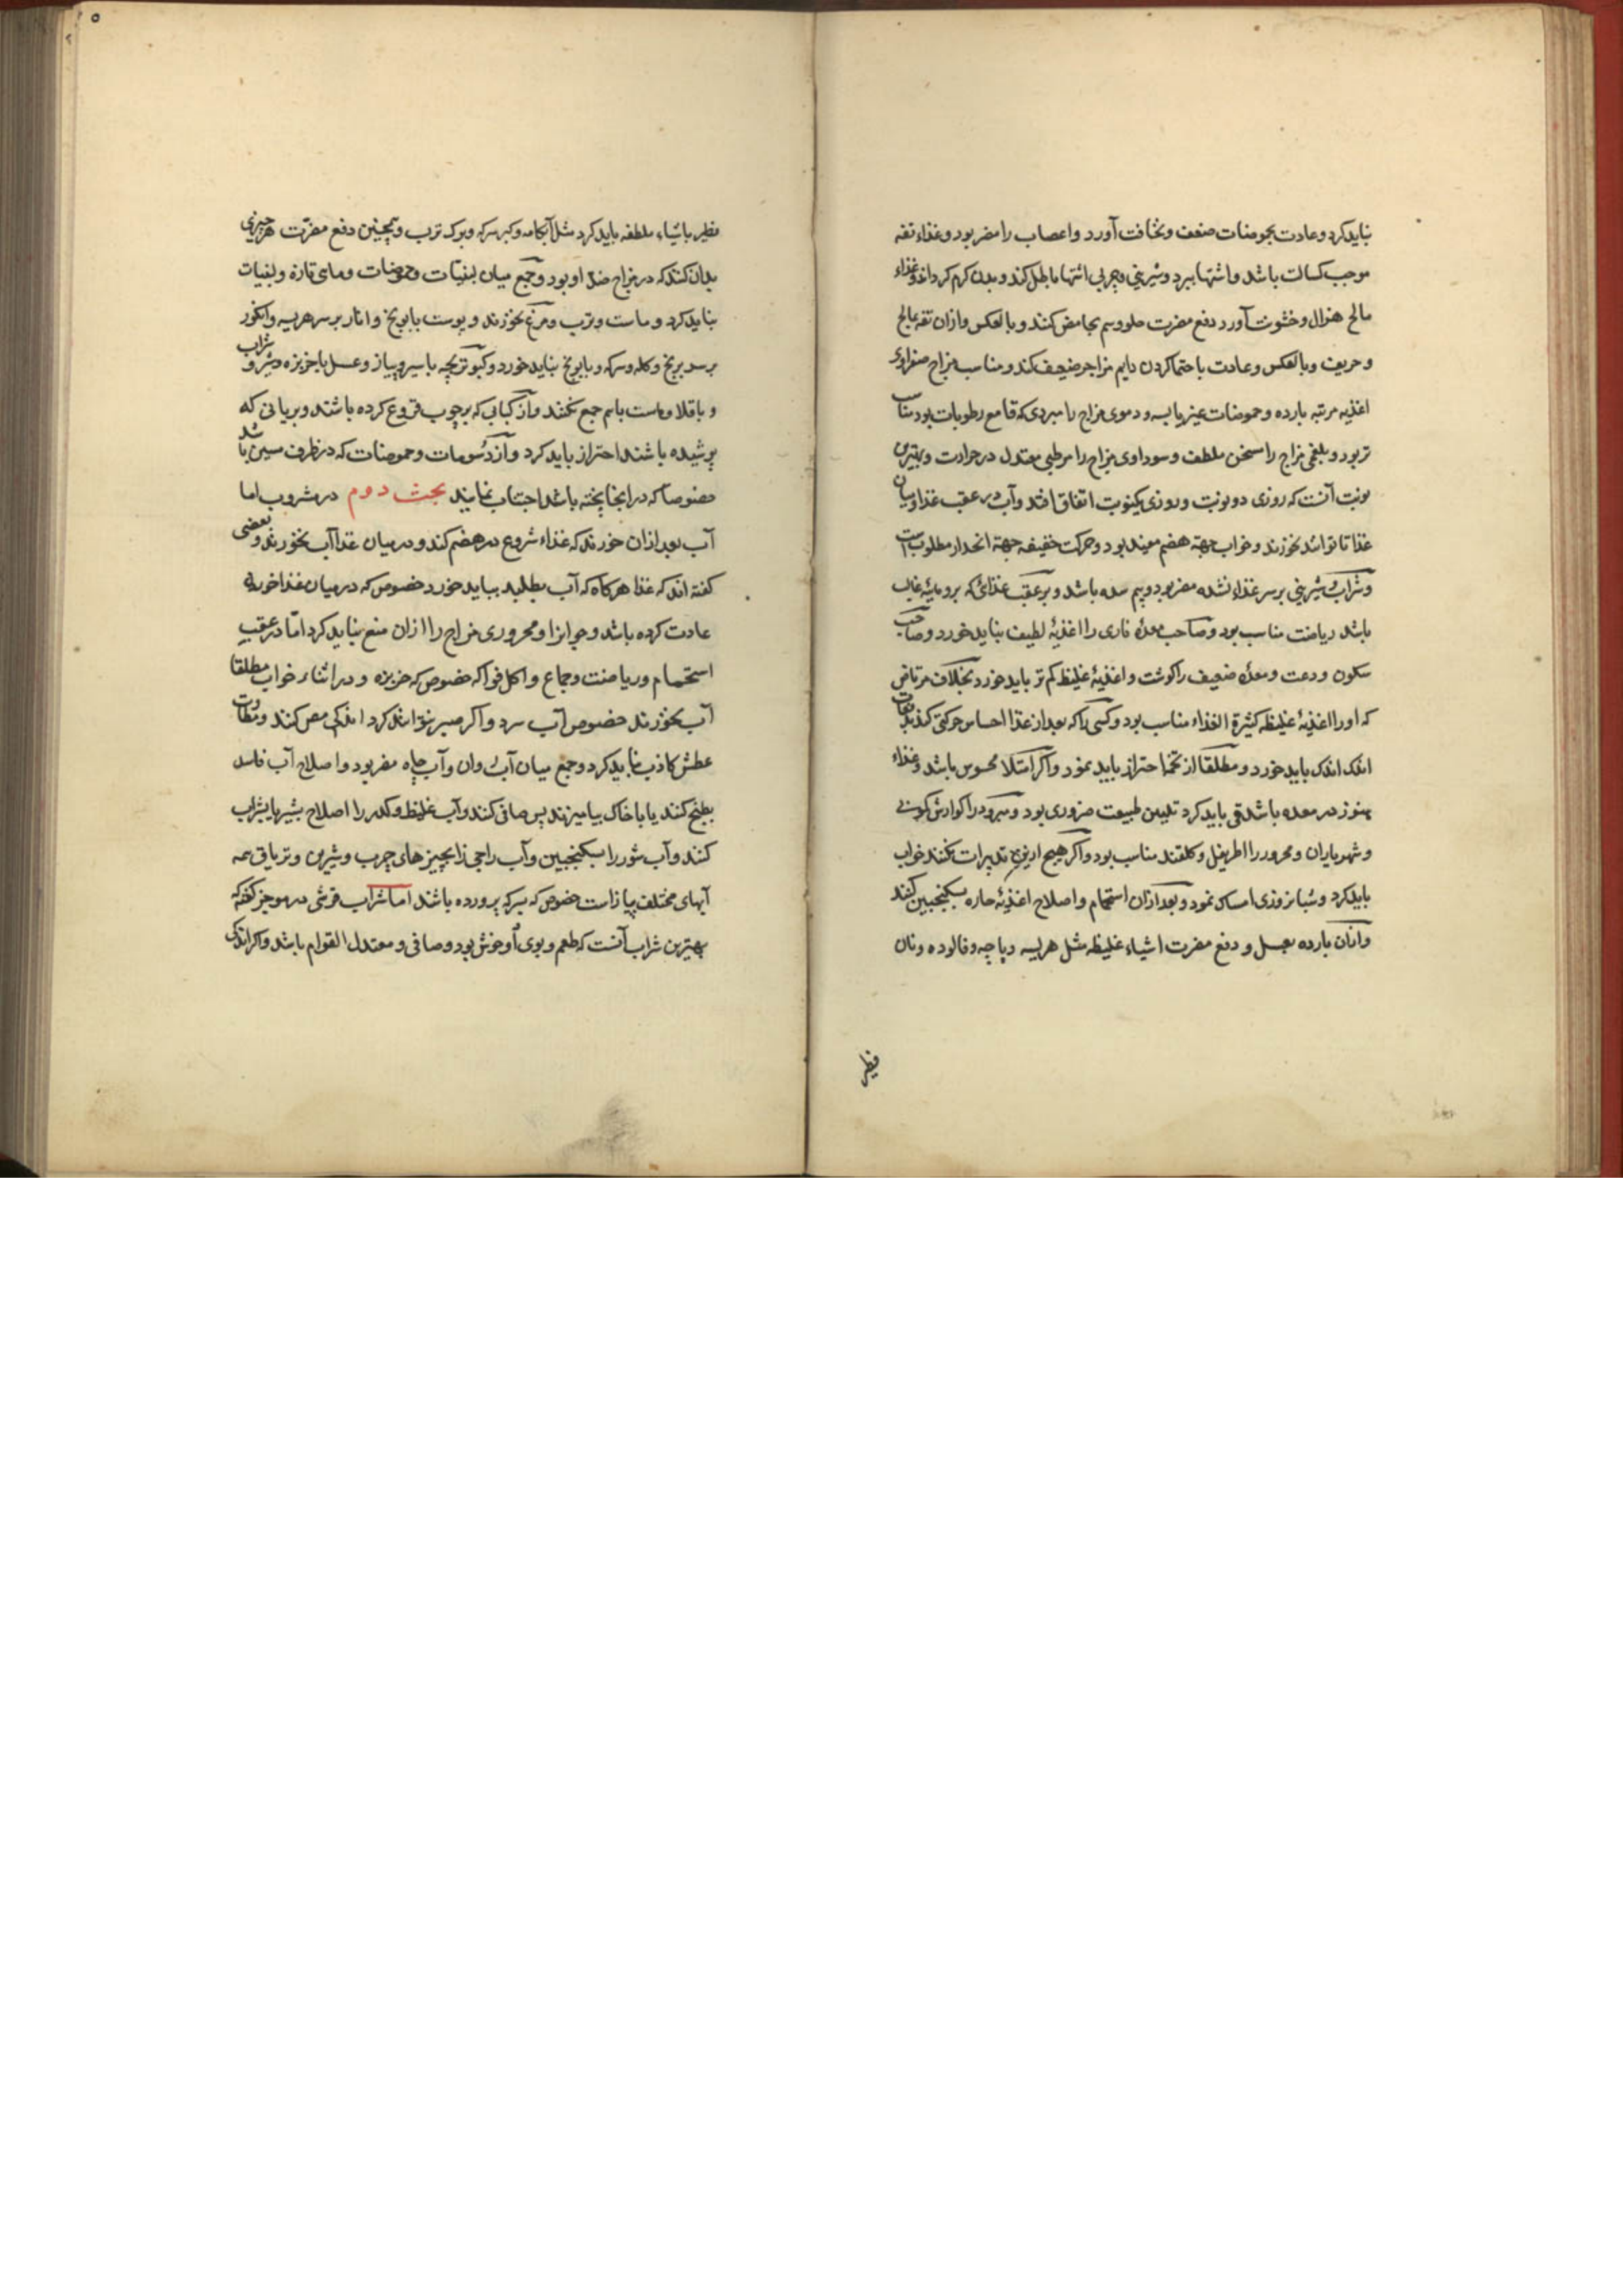 نباید کرد و عادت بحموضات ضعف و نخافت آورد و اعصاب را مضر بود و غذاء تفه
موجب کسالت باشد و اشتها ببرد و شیرینی و چربی اشتها باطل کند و بدن کرم کرداند و غذاء
مالح هزال و خشونت آورد دفع مضرت حلو و سم بحامض کنند و بالعکس و ازان تفه بمالح
و حریف و بالعکس و عادت باحتما کردن دایم مزاج ضعیف کند و مناسب مزاج صفراوی
اغذیه مرتبه بارده و حموضات غیر یابسه و دموی مزاج را مبردی که قامع رطوبات بود مناسب
تر بود و بلغمی مزاج را مسخن ملطف و سوداوی مزاج را مرطبی معتدل در حرارت و بهترین
نوبت آنست که روزی دو نوبت و روزی یکنوبت اتفاق افتد و آب در عقب غذا و میان
غذا تا توانند نخورند و خواب جهة هضم مفید بود و حرکت خفیفه جهة انحدار مطلوب است
و شراب شیرینی بر سر غذاء نشده مضر بود و بیم سده باشد و بر عقب غذائی که برو مائیة غالب
باشد ریاضت مناسب بود و صاحب معدهٔ ناری را اغذیهٔ لطیف نباید خورد و صاحب
سکون و دعت و معدهٔ ضعیف را کوشت و اغذیهٔ غلیظ کم تر باید خورد بخلاف مرتاض
که او را اغذیهٔ غلیظه کثیرة الغذاء مناسب بود و کسی را که بعد از غذا احساس حرکتی کند بدفعات
اندک اندک باید خورد و مطلقا از تخمه احتراز باید نمود و اکر امتلا محسوس باشد و غذاء
هنوز در معده باشد قی باید کرد تلیین طبیعت ضروری بود و مبرود را کوارش کمونی
و شهریاران و محرور را اطریفل و کلقند مناسب بود و اکر هیچ ازین تدبیرات نکنند خواب
باید کرد و شبانروزی امساک نمود و بعد ازان استحمام و اصلاح اغذیهٔ حاره بسکنجبین کنند
و ازان بارده بعسل و دفع مضرت اشیاء غلیظه مثل هریسه و پاچه و فالوده و نان
فطیر
فطیر باشیاء ملطفه باید کرد مثل آبکامه و کبر سرکه و برک ترب و همچنین دفع مضرت هر چیزی
بدان کنند که در مزاج ضد او بود و جمع میان لبنیات و حموضات و ماهی تازه و لبنیات
نباید کرد و ماست و ترب و مرغ نخورند و پوست با برنج و انار بر سر هریسه و انکور
بر سر برنج و کله و سرکه و با برنج نباید خورد و کبوتربچه با سیر و پیاز و عسل با خربزه و شیر و شراب
و باقلا و ماست باهم جمع نکنند و از کبابی که بر چوب خروع کرده باشند و بریانی که
پوشیده باشند احتراز باید کرد و از دسومات و حموضات که در ظرف مسین باشد
خصوصا که در انجا پخته باشد اجتناب نمایند بحث دوم در مشروب اما
آب بعد ازان خورند که غذاء شروع در هضم کند و در میان غذا آب نخورند و بعضی
کفته اند که غذا هرکاه که آب بطلبد بباید خورد خصوص که در میان غذا خوردن
عادت کرده باشد و جوانرا و محروری مزاج را ازان منع نباید کرد اما در عقب
استحمام و ریاضت و جماع و اکل فواکه خصوص که خربزه و در اثناء خواب مطلقا
آب نخورند خصوص آب سرد و اکر صبر نتوانند کرد اندکی مص کنند و مطاوعت
عطش کاذب نباید کرد و جمع میان آب روان و آب چاه مضر بود و اصلاح آب فاسد
بطبخ کنند یا با خاک بیامیزند پس صافی کنند و آب غلیظ و کدر را اصلاح بشیر یا بشراب
کنند و آب شور را بسکنجبین و آب زاجی را بچیزهای چرب و شیرین و تریاق همه
آبهای مختلف پیاز است خصوص که بسرکه پرورده باشند اما شراب قرشی در موجز کفته که
بهترین شراب آنست که طعم و بوی او خوش بود و صافی و معتدل القوام باشد و اکر اندکی